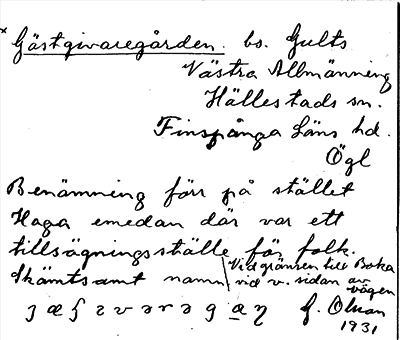 Gästgivaregården. bs. Gults
Västra Allmänning
Hällestads sn.
Finspånga Läns hd.
Ögl
Benämning förr på stället
Haga emedan där var ett
tillsägningsställe för folk.
Skämtsamt namn
Vid gränsen till Boka
vid v. sidan av
vägen
1931